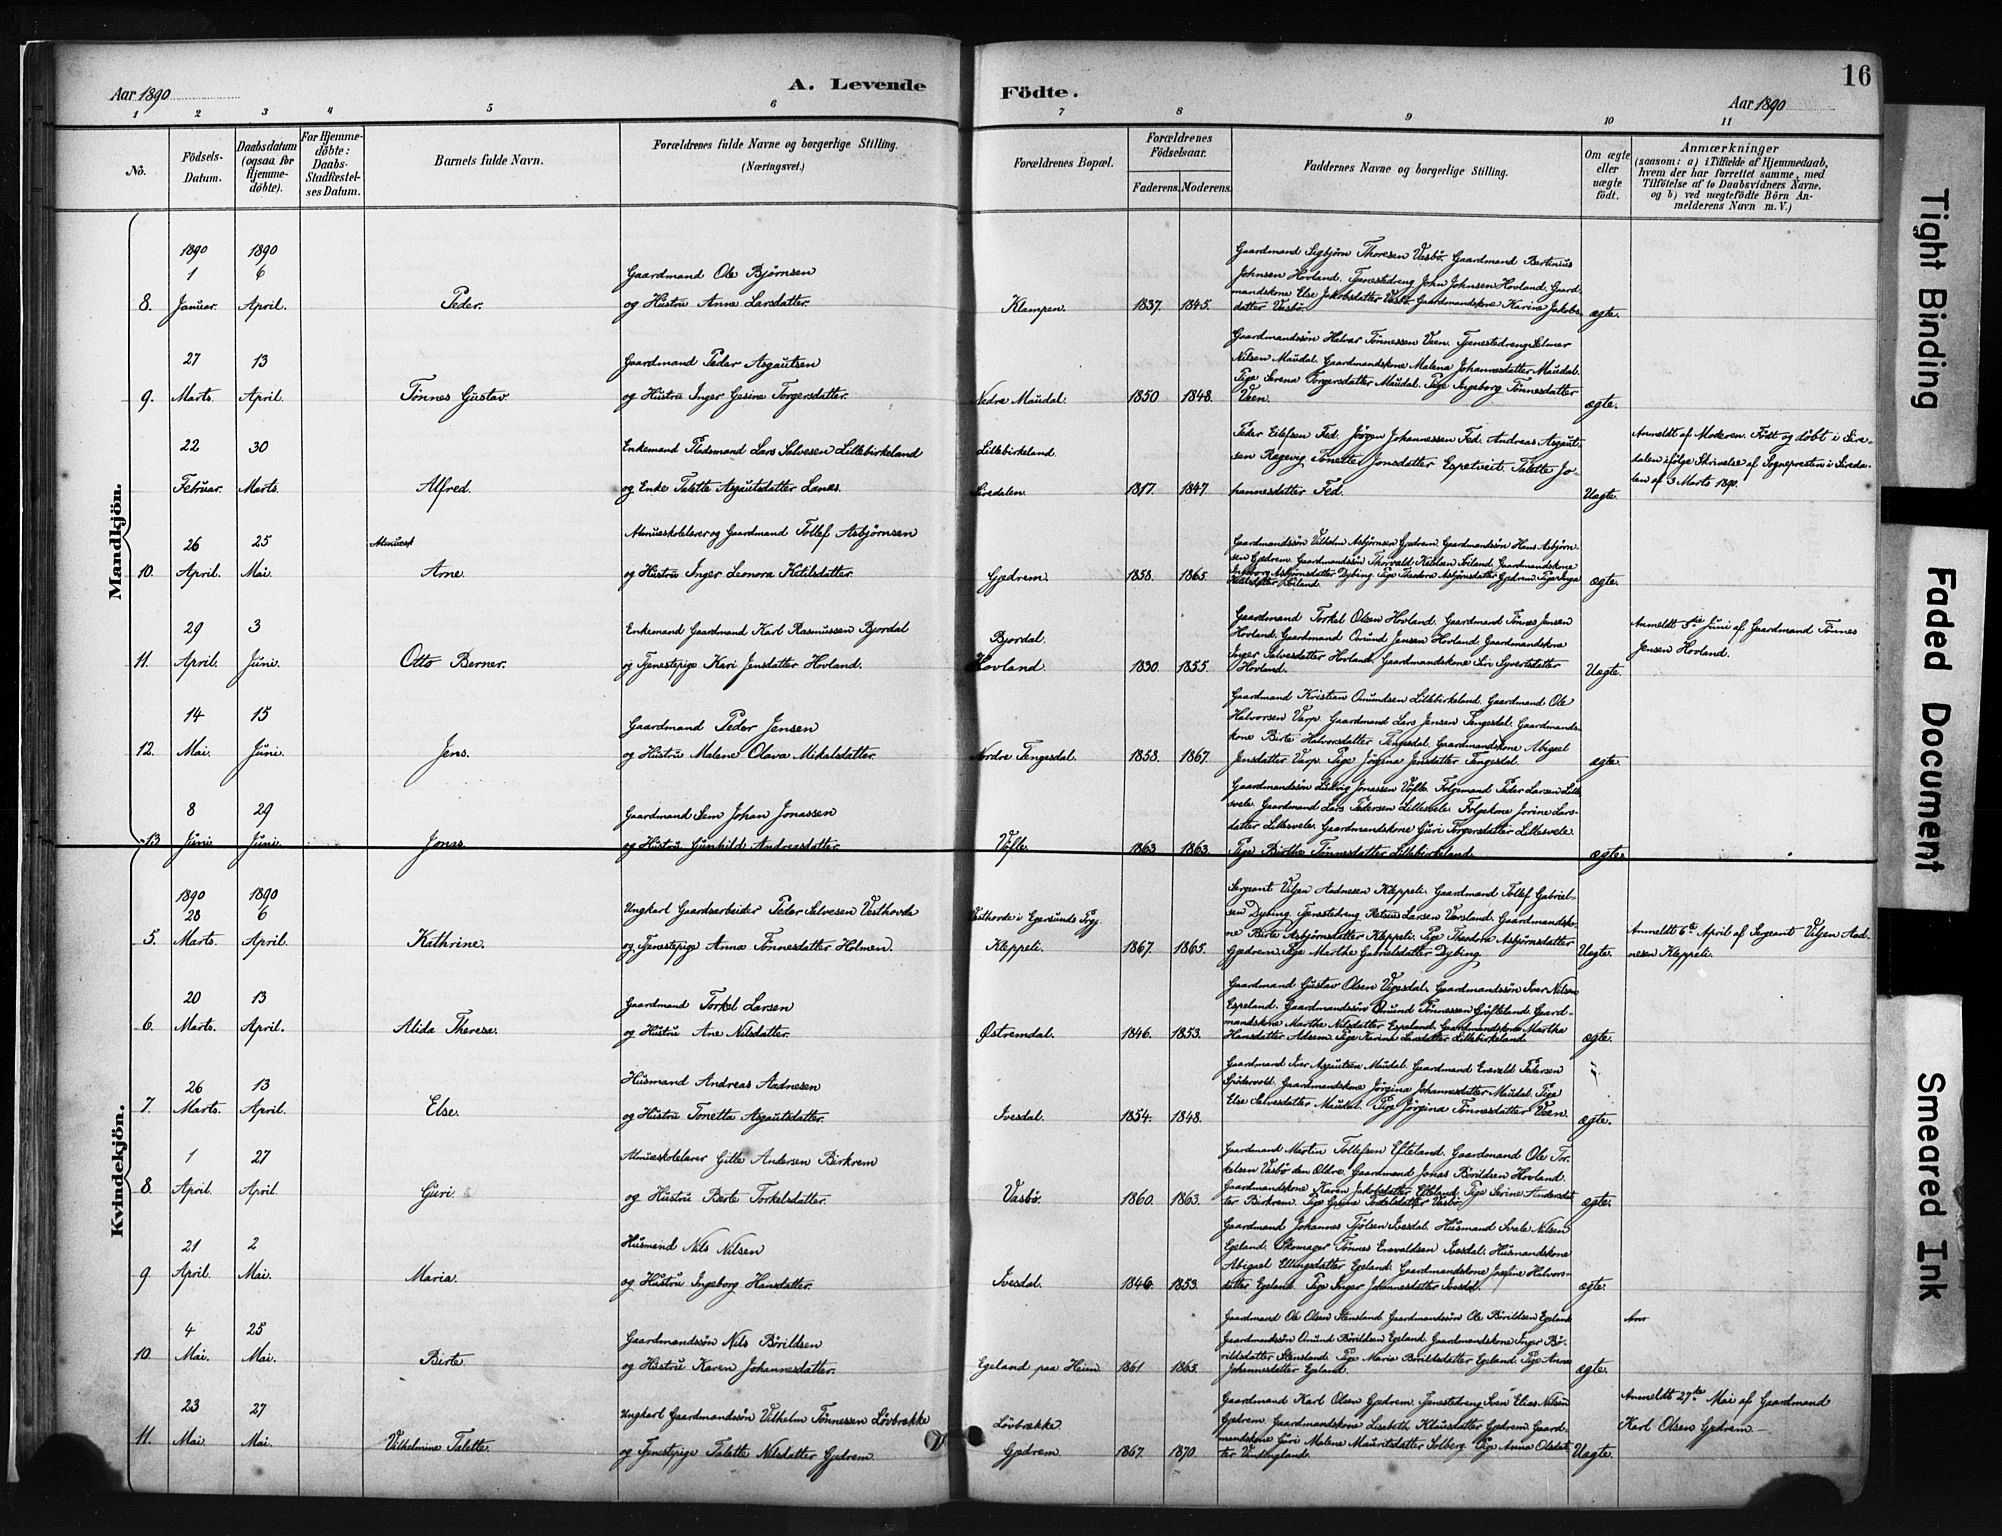 Aar 1890
A. Levende
Födte.
Aar 1890
16
1 2 3 4 5 6 7 8 9 10 11
No.
Födsels-Datum.
Daabsdatum (ogsaa for Hjemmedöbte).
For Hjemmedöbte: Daabs-Stadfæstelses Datum.
Barnets fulde Navn.
Forældrenes fulde Navne og borgerlige Stilling. (Næringsvei.)
Forældrenes Bopæl.
Forældrenes Födselsaar.
Faderens. Moderens.
Faddernes Navne og borgerlige Stilling.
Om ægte eller uægte födt.
Anmærkninger
(saasom: a) i Tilfælde af Hjemmedaab,
hvem der har forrettet samme, med
Tilföielse af to Daabsvidners Navne,
og b) ved uægtefödte Börn An-
melderens Navn m. V.)
Mandkjön.
8. 1890 1 Januar. 1890 6 April. Peder.
Gaardmand Ole Bjørnsen
og Hustru Anne Larsdatter.
Klampen. 1837. 1845.
Gaardmand Sigbjörn Thoresen Vasbö. Gaardmand Bertinius
Johnsen Hovland. Tjenestedreng John Johnsen Hovland. Gaard-
mandskone Else Jakobsdatter Vasbö. Gaardmandskone Karine Jakobs-
datter Vasbö.
ægte.
9. 27 Marts. 13 April. Tönnes Gustav.
Gaardmand Peder Asgautsen
og Hustru Inger Gesine Torgersdatter.
Nedre Maudal. 1850 1848.
Gaardmandssön Halvar Tönnessen Veen. Tjenestedreng Elmer
Nilsen Maudal. Gaardmandskone Malena Johannesdatter Maudal.
Pige Serena Torgersdatter Maudal. Pige Ingeborg Tönnesdatter
Veen.
ægte.
22 Februar. 30 Marts. Alfred.
Enkemand Pladsmand Lars Salvesen Lillebirkeland
og Enke Talette Asgautsdatter Lanes.
Lillebirkeland.
Siredalen. 1817. 1847.
Peder Eilefsen Fed. Jörgen Johannessen Fed. Andreas Asgaut-
sen Regevig. Tonette Jonsdatter Espetveit. Talette Jo-
hannesdatter Fed.
Uægte.
Anmeldt af Moderen. Födt og döbt i Sire-
dalen ifölge Skrivelse af Sognepresten i Sireda-
len af 3 Marts 1890.
10. 26 April. 25 Mai. Arne.
Almueskolelærer og Gaardmand Tollef Asbjörnsen
og Hustru Inger Leonora Ketilsdatter.
Gjedrem. 1858. 1865.
Gaardmandssön Vilhelm Asbjörnsen Gjedrem. Gaardmandssön Hans Asbjörn-
sen Gjedrem. Gaardmandssön Thorvald Ketilsen Röiland. Gaardmandskone
Ingeborg Asbjörnsdatter Dybing. Pige Theodora Asbjörnsdatter Gjedrem. Pige Inga
Ketilsdatter Röiland.
ægte.
11. 29 April. 3 Juni. Otto Berner.
Enkemand Gaardmand Karl Rasmussen Bjordal
og Tjenestepige Kari Jensdatter Hovland.
Bjordal.
Hovland 1830. 1855.
Gaardmand Torkel Olsen Hovland. Gaardmand Tönnes Jensen
Hovland. Gaardmand Omund Jensen Hovland. Gaardmandskone
Inger Salvesdatter Hovland. Gaardmandskone Siri Syvertsdatter
Hovland.
Uægte.
Anmeldt 3die Juni af Gaardmand Tönnes
Jensen Hovland.
12. 14 Mai. 15 Juni. Jens.
Gaardmand Peder Jensen
og Hustru Malene Olava Mikalsdatter.
Nordre Tengesdal. 1858. 1867.
Gaardmand Kristian Omundsen Lillebirkeland. Gaardmand Ole
Halvorsen Varp. Gaardmand Lars Jensen Tengesdal. Gaardmands-
kone Birte Halvorsdatter Tengesdal. Gaardmandskone Abigael
Jensdatter Varp. Pige Jörgina Jensdatter Tengesdal.
ægte.
13 8 Juni 29 Juni. Jonas.
Gaardmand Sem Johan Jonassen
og Hustru Gunhild Andreasdatter.
Vöfte. 1863 1863.
Gaardmandssön Ludvig Jonassen Vöfte. Folgemand Peder Larsen Lille-
svele. Gaardmand Lars Pedersen Lillesvele. Folgekone Jorine Lars-
datter Lillesvele. Gaardmandskone Guri Torgersdatter Lillesvele
Pige Birthe Tönnesdatter Lillebirkeland.
ægte.
Kvindekjön.
5. 1890 28 Marts. 1890 6 April. Kathrine.
Ungkarl Gaardsarbeider Peder Salvesen Vesthovde
og Tjenestepige Anna Tönnesdatter Holmen.
Vesthovde i Egersunds Prgj.
Kleppeli. 1867. 1865.
Sergeant Viljen Aadnesen Kleppeli. Gaardmand Tollef Gabriel-
sen Dybing. Tjenestedreng Retsius Larsen Værsland. Gaardmandsko-
ne Birte Asbjörnsdatter Kleppeli. Pige Theodora Asbjörnsdatter
Gjedrem. Pige Marthe Gabrielsdatter Dybing.
Uægte.
Anmeldt 6te April af Sergeant Viljen Aad-
nesen Kleppeli.
6. 20 Marts. 13 April. Alida Therese.
Gaardmand Torkel Larsen
og Hustru Ane Nilsdatter.
Østremdal. 1846. 1853.
Gaardmand Gustav Olsen Vigesdal. Gaardmandssön Iver Nilsen
Espeland. Gaardmandssön Omund Tönnessen Gröfteland. Gaard-
mandskone Martha Nilsdatter Espeland. Gaardmandskone Martha
Hansdatter Adsem. Pige Karina Larsdatter Lillebirkeland.
ægte.
7. 26 Marts. 13 April. Else.
Husmand Andreas Aadnesen
og Hustru Tonetta Asgautsdatter.
Ivesdal. 1854. 1848.
Gaardmand Iver Asgautsen Maudal. Gaardmand Enevald Pedersen
Spödervold. Gaardmandskone Jörgina Johannesdatter Maudal. Pige
Else Salvesdatter Maudal. Pige Jörgina Tönnesdatter Veen.
ægte.
8. 1 April. 27 April. Guri.
Almueskolelærer Gitle Andersen Birkrem
og Hustru Berte Torkelsdatter.
Vasbö. 1860. 1863.
Gaardmand Martin Tollefsen Efteland. Gaardmand Ole Tor-
kelsen Vasbö den Ældre. Gaardmand Jonas Börildsen Hovland.
Gaardmandskone Karen Jakobsdatter Efteland. Pige Serine Andersdat-
ter Birkrem. Pige Torkelsdatter Vasbö.
ægte.
9. 21 April. 2 Mai. Maria.
Husmand Nils Nilsen
og Hustru Ingeborg Hansdatter.
Ivesdal. 1846. 1853.
Gaardmand Johannes Tjölsen Ivesdal. Husmand Svale Nilsen
Egeland. Skomager Tönnes Enevaldsen Ivesdal. Husmandskone
Abigael Ellingsdatter Egeland. Gaardmandskone Josefine Halvors-
datter Egeland. Pige Inger Johannesdatter Ivesdal.
ægte.
10. 4 Mai. 25 Mai. Birte.
Gaardmandssön Nils Börildsen
og Hustru Karen Johannesdatter.
Egeland paa Heien 1861 1865.
Gaardmand Ole Olsen Stensland. Gaardmandssön Ole Börildsen Egeland
Gaardmandssön Omund Börildsen Egeland. Gaardmandskone Inger Bö-
rildsdatter Stensland. Pige Maria Börildsdatter Egeland. Pige Anna
Johannesdatter Egeland.
ægte.
11. 23 Mai. 27 Mai. Vilhelmine Talette.
Ungkarl Gaardmandssön Vilhelm Tönnessen Lövbrække
og Tjenestepige Talette Nilsdatter Gjedrem.
Lövbrække.
Gjedrem. 1867. 1870.
Gaardmand Karl Olsen Gjedrem. Tjenestedreng Sven Elias Nilsen
Gjedrem. Gaardmandskone Lisebeth Klausdatter Gjedrem. Gaard-
mandskone Guri Malene Mauritsdatter Solberg. Pige Anna Olsdat-
ter Vindingland.
Uægte.
Anmeldt 27de Mai af Gaardmand
Karl Olsen Gjedrem.
Tight Binding
Faded Document
Smeared Ink